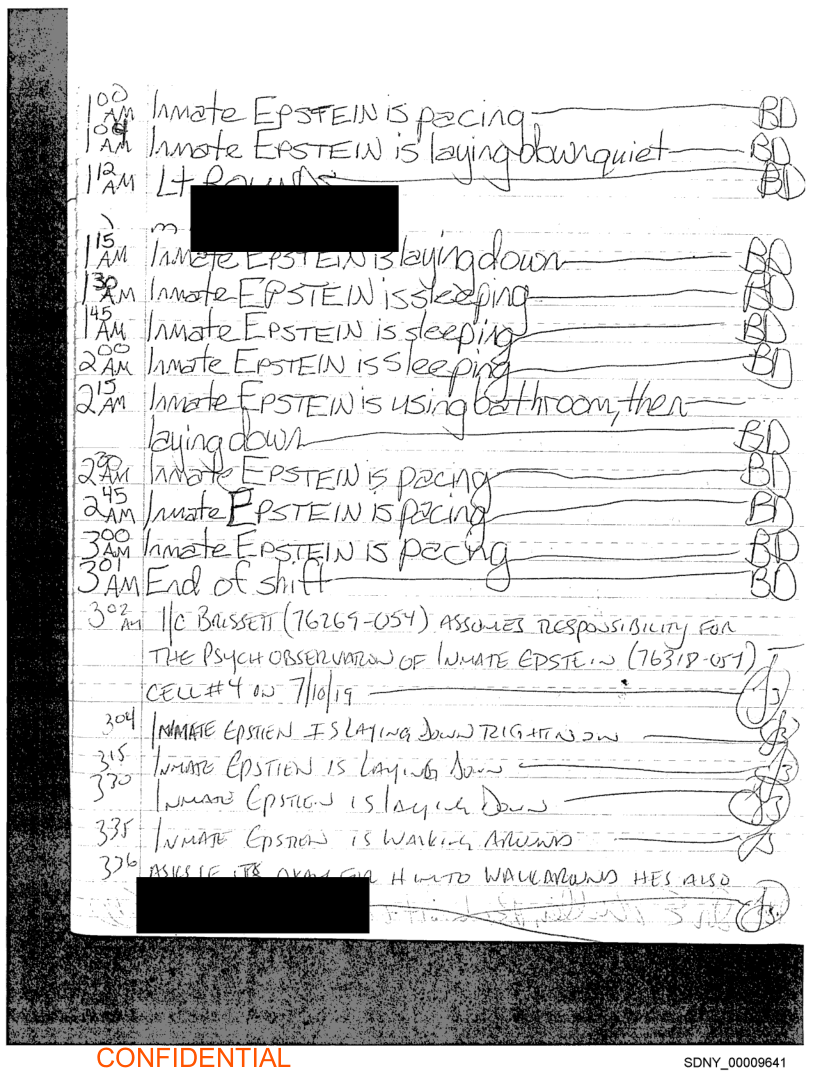 1 00 AM Inmate EPSTEIN is pacing BD
1 04 AM Inmate EPSTEIN is laying down quiet BD
1 12 AM Lt ROUNDS BD
1 15 AM Inmate EPSTEIN is laying down BD
1 30 AM Inmate EPSTEIN is sleeping BD
1 45 AM Inmate EPSTEIN is sleeping BD
2 00 AM Inmate EPSTEIN is sleeping BD
2 15 AM Inmate EPSTEIN is using bathroom, then
laying down BD
2 30 AM Inmate EPSTEIN is pacing BD
2 45 AM Inmate EPSTEIN is pacing BD
3 00 AM Inmate EPSTEIN is pacing BD
3 01 AM End of shift BD
3 02 AM I/C BRISSETT (76269-054) ASSUMES RESPONSIBILITY FOR
THE PSYCH OBSERVATION OF INMATE EPSTEIN (76318-054)
CELL #4 ON 7/10/19
304 INMATE EPSTIEN IS LAYING DOWN RIGHT NOW
315 INMATE EPSTIEN IS LAYING DOWN
330 INMATE EPSTIEN IS laying DOWN
335 INMATE EPSTIEN IS WALKING AROUND
336 ASKS IF ITS OKAY FOR HIM TO WALK AROUND HES ALSO
CONFIDENTIAL
SDNY_00009641